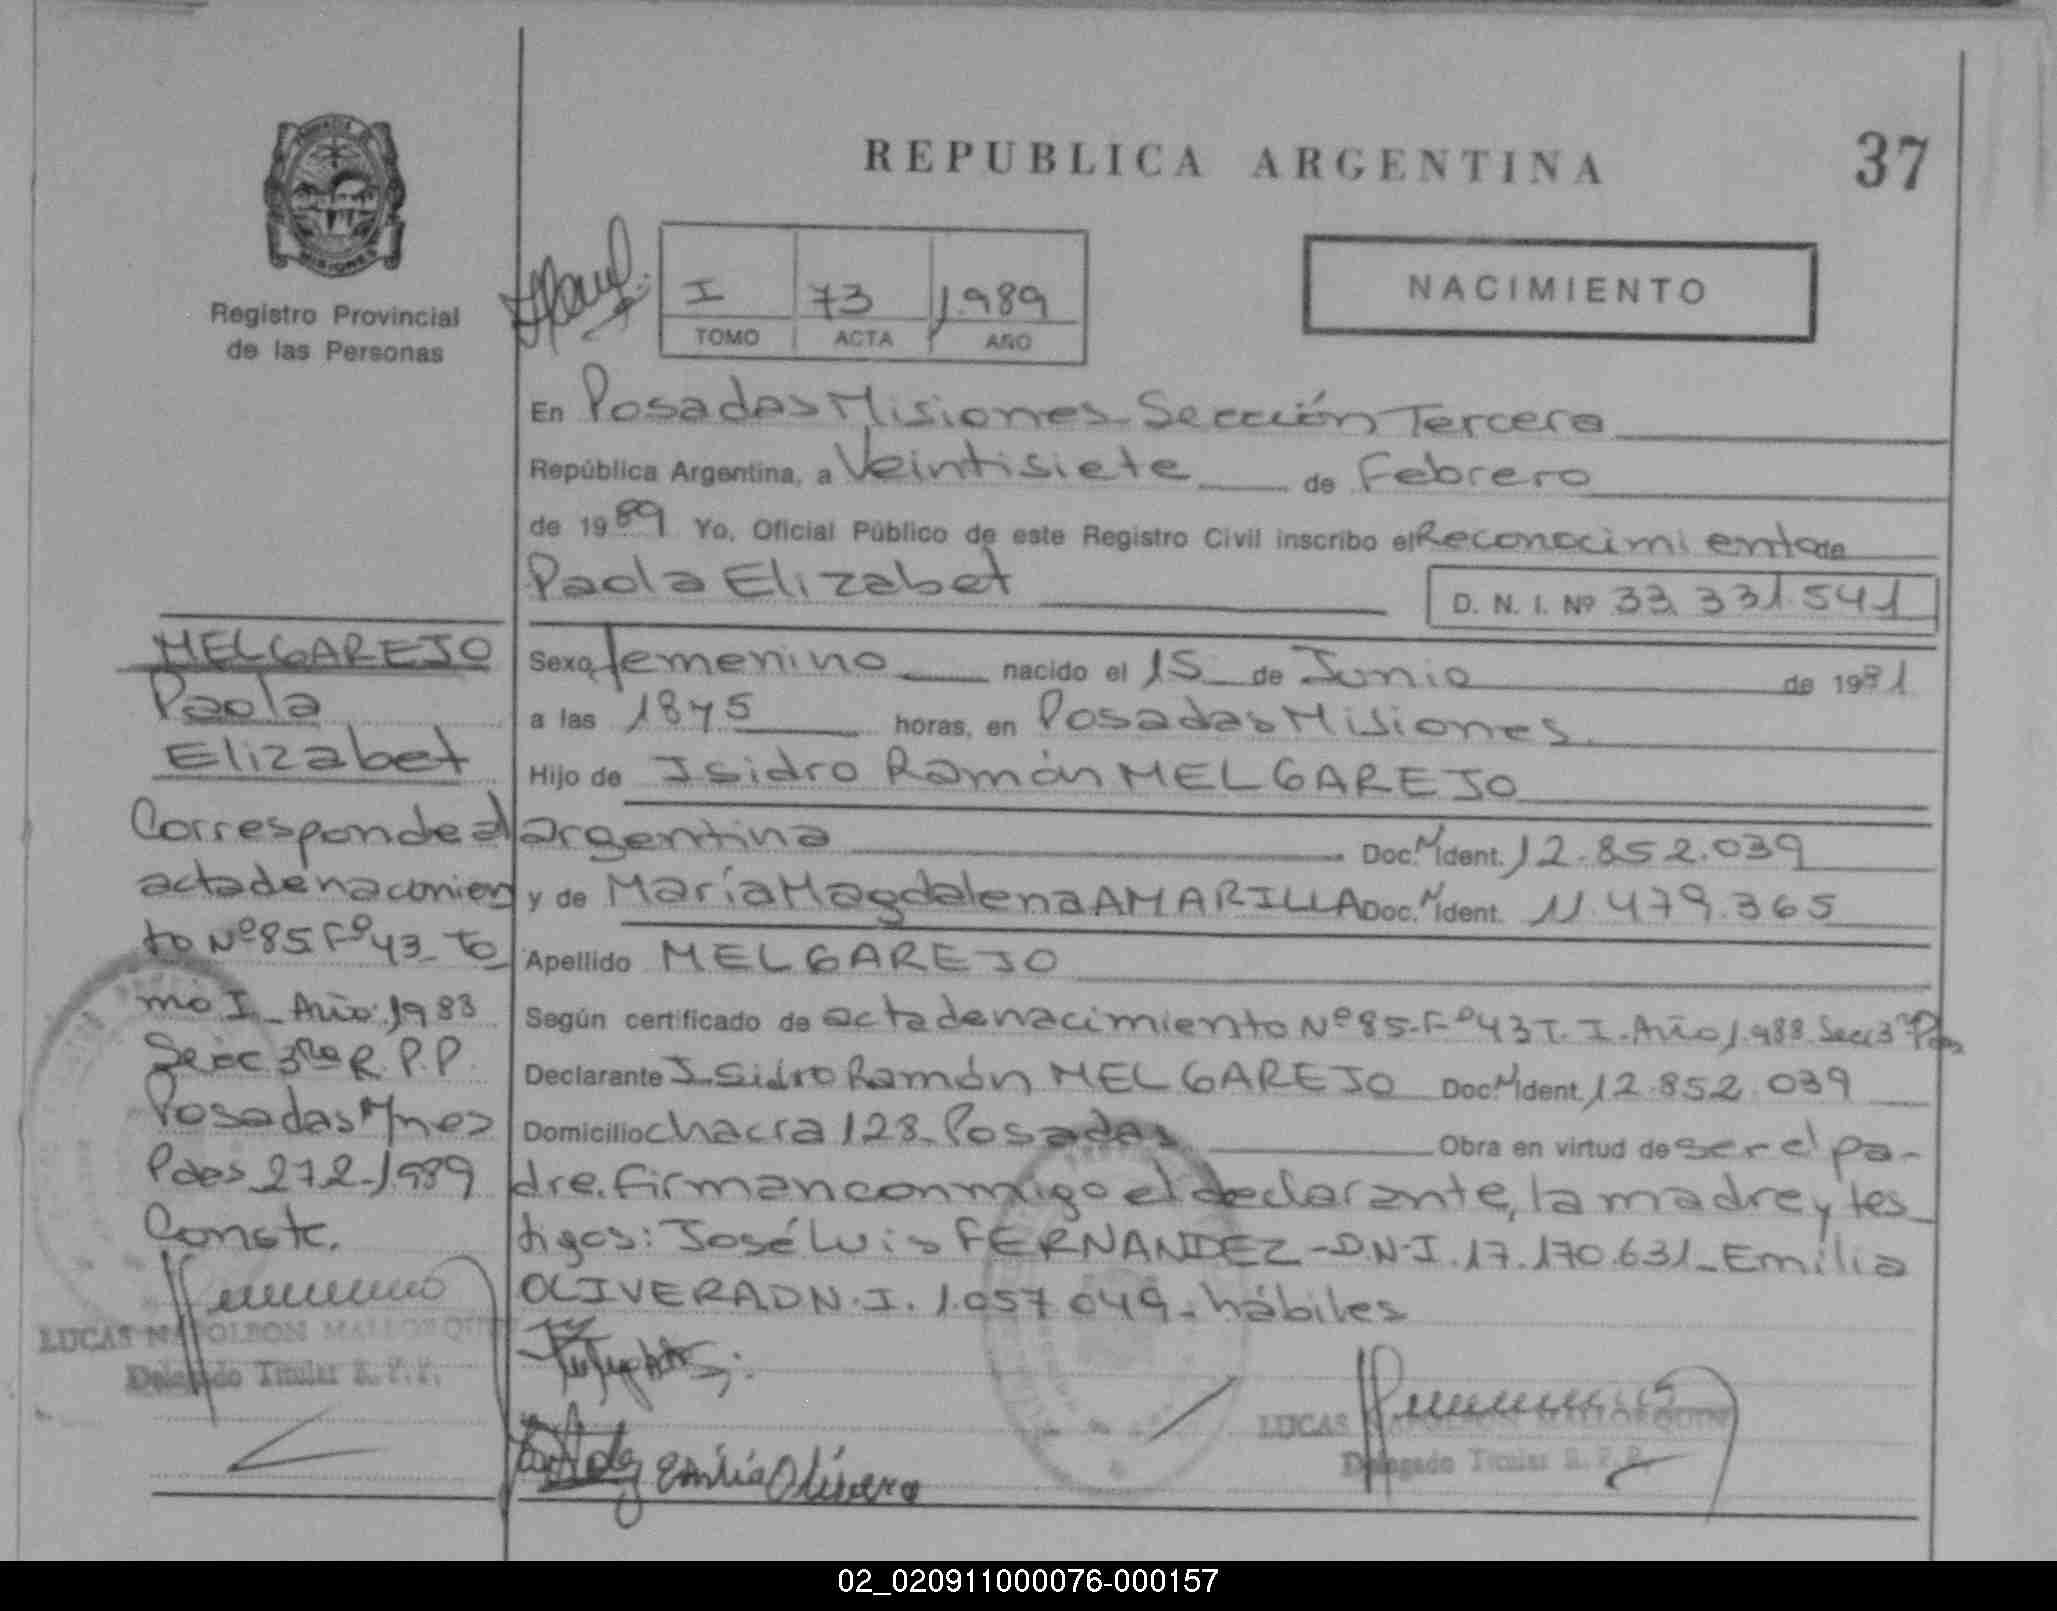 REPUBLICA ARGENTINA
37
Registro Provincial
de las Personas
I 73 1.989
TOMO ACTA AÑO
NACIMIENTO
En Posadas Misiones-Sección Tercera
República Argentina, a Veintisiete de Febrero
de 1989 Yo, Oficial Público de este Registro Civil inscribo el Reconocimiento de
Paola Elizabet
D. N. I. Nº 33.331.541
Sexo femenino nacido el 15 de Junio de 1981
a las 1845 horas, en Posadas Misiones
Hijo de Isidro Ramón MELGAREJO
argentina Doc. N Ident. 12.852.039
y de María Magdalena AMARILLA Doc. N Ident. 11.479.365
Apellido MELGAREJO
Según certificado de acta de nacimiento Nº 85-Fº 43 T. I-Año 1.988 Secc 3ª Pdas
Declarante Isidro Ramón MELGAREJO Doc. N Ident. 12.852.039
Domicilio chacra 128-Posadas Obra en virtud de ser el pa-
dre. firman conmigo el declarante, la madre y tes-
tigos: José Luis FERNANDEZ-D.N.I. 17.170.631-Emilia
OLIVERA D.N.I. 1.057.049-hábiles
Emilia Olivera
LUCAS NAPOLEON MALLORQUIN
Delegado Titular R. P. P.
MELGAREJO
Paola
Elizabet
Corresponde al
acta de nacimien
to Nº 85 Fº 43-To
mo I-Año: 1988
Secc 3ra R.P.P.
Posadas Mnes
Pdas 27-2-1.989
Conste.
LUCAS NAPOLEON MALLORQUIN
Delegado Titular R. P. P.
02_020911000076-000157